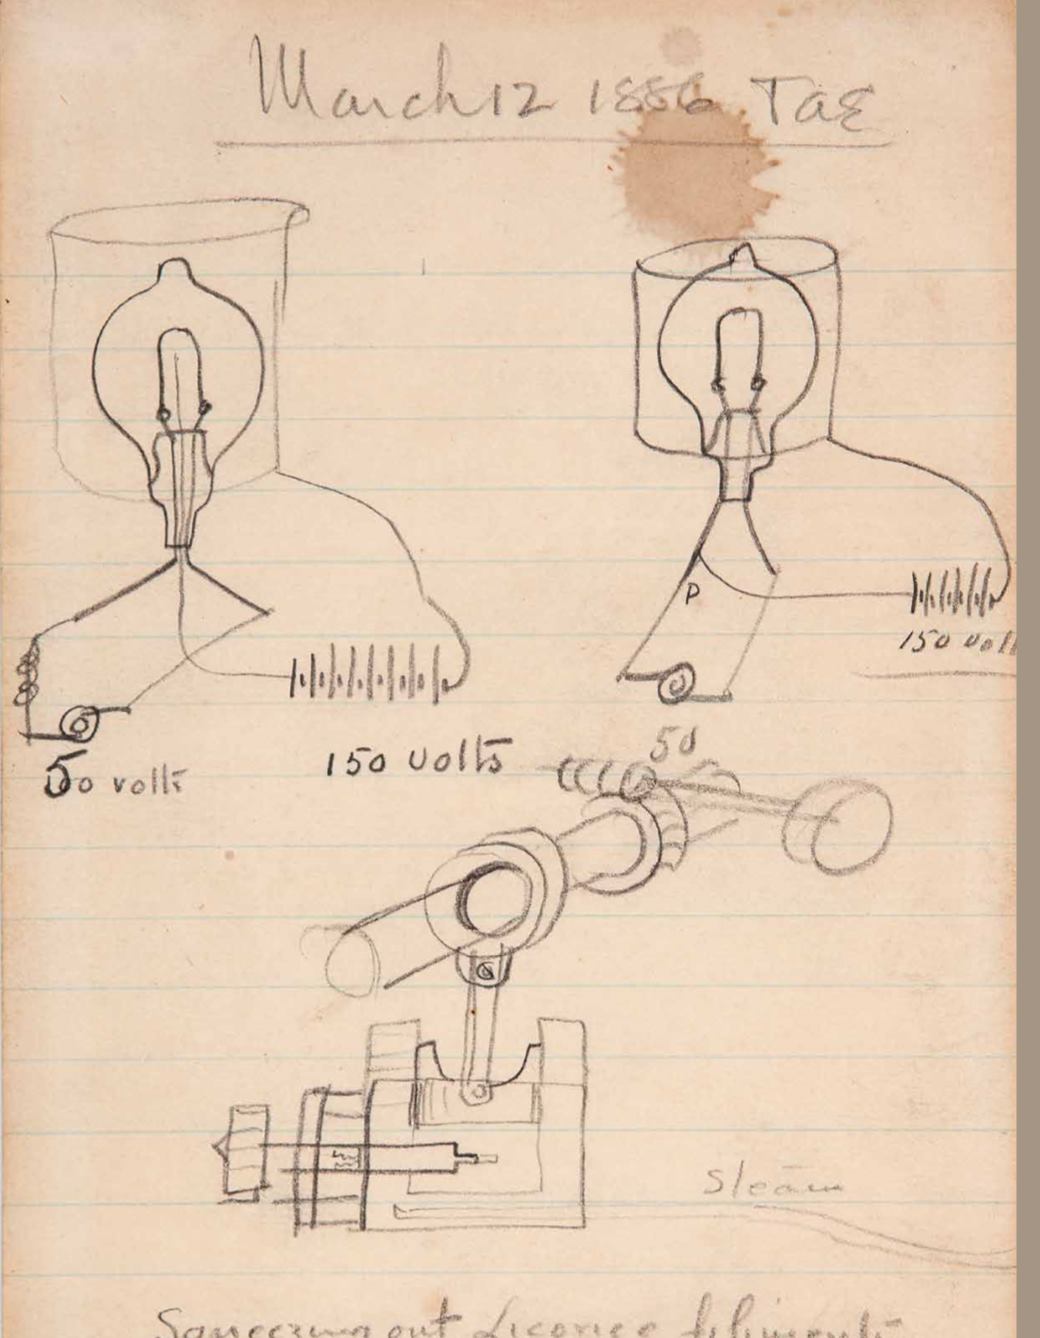 March 12 1886 TAE
P
150 volt
50 volts
150 volts
50
Steam
Squeezing out Licorice filiments